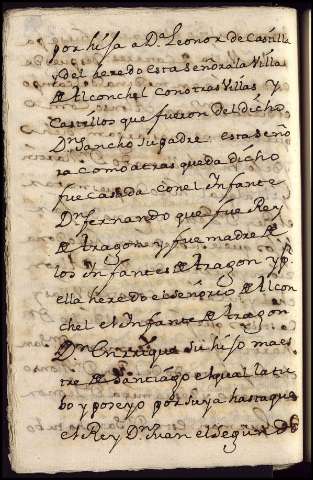 por hija a Dª Leonor de Castilla
y del heredo esta señora la Villa
de Alconchel con otras Villas y
Castillos que fueron del dicho
Dn Sancho su padre. esta seño
ra como atras queda dicho
fue casada con el Infante
Dn fernando que fue Rey
de Aragon y fue madre de
los infantes de Aragon y pr
ella heredo el señorio de Alcon
chel el infante de Aragon
Dn Enrrique su hijo maes
tre de Santiago el qual la tu
bo y poseyo por suya hasta que
el Rey Dn Juan el segundo